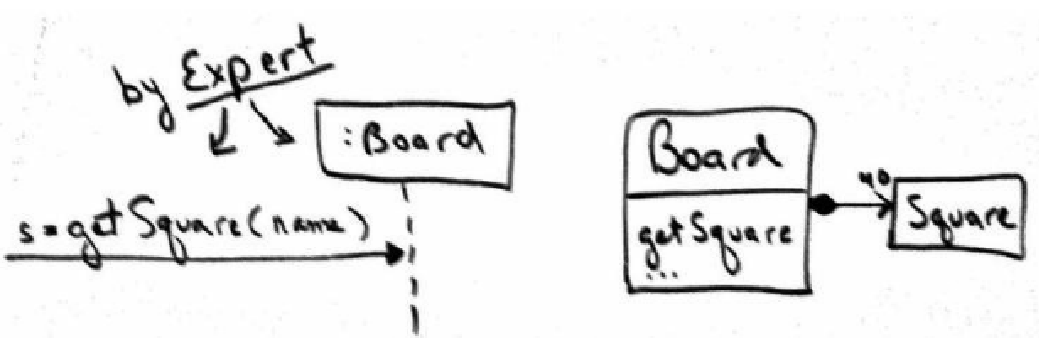 by Expert
:Board
s = getSquare(name)
Board
getSquare
...
40
Square